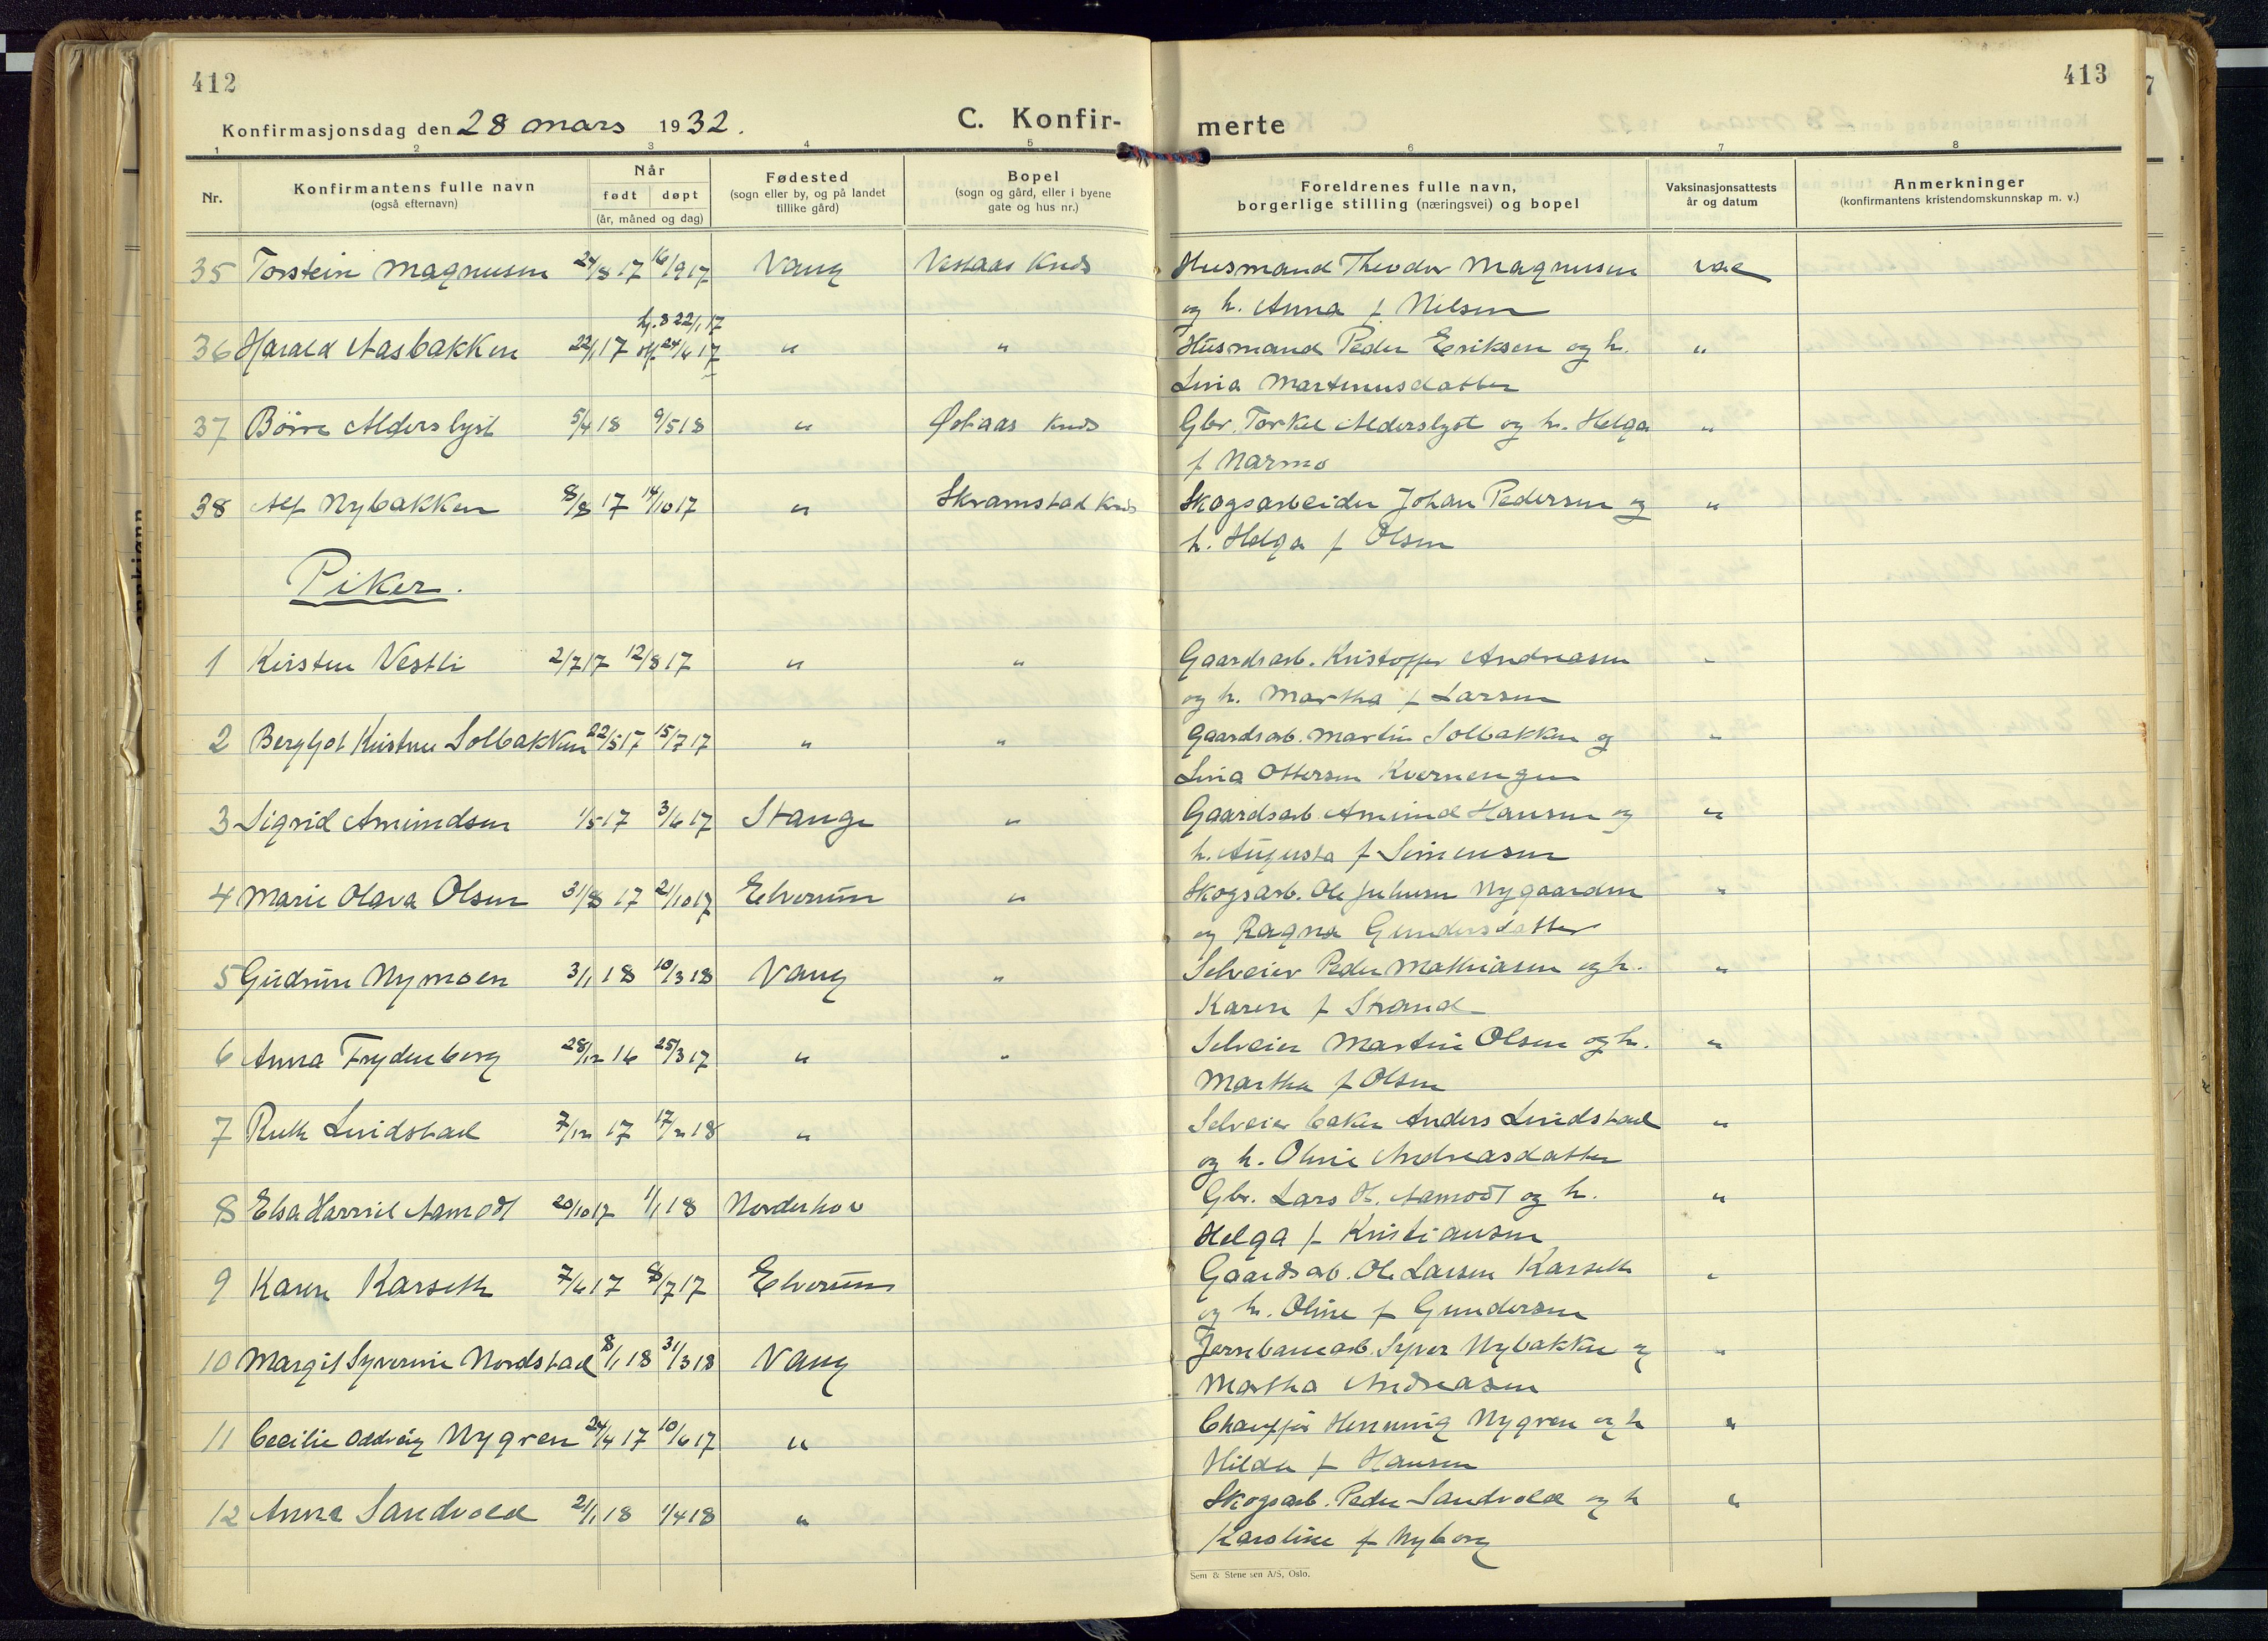 412
413
Konfirmasjonsdag den 28 mars 1932.
C. Konfir-
merte
1 2 3 4 5 6 7 8
Nr.
Konfirmantens fulle navn
(også efternavn)
Når
født døpt
(år, måned og dag)
Fødested
(sogn eller by, og på landet
tillike gård)
Bopel
(sogn og gård, eller i byene
gate og hus nr.)
Foreldrenes fulle navn,
borgerlige stilling (næringsvei) og bopel
Vaksinasjonsattests
år og datum
Anmerkninger
(konfirmantens kristendomskunnskap m. v.)
35 Torstein Magnusen 24/8 17 16/9 17 Vang Vestaas Kreds Husmand Theodor Magnusen vac
og h. Anna f Nilsen
hj. d 22/1 17
36 Harald Aasbakken 22/1 17 24/6 17 " " Husmand Peder Eriksen og h. "
Lina Martinusdatter
37 Börre Alderslyst 5/4 18 9/5 18 " Østaas Kreds Gbr. Torkel Alderslyst og h. Helga "
f Narmo
38 Alf Nybakken 8/8 17 14/10 17 " Skramstad Kreds Skogsarbeider Johan Pedersen og "
h. Helga f Olsen
Piker.
1 Kirsten Vestli 2/7 17 12/8 17 " " Gaardsarb. Kristoffer Andreasen "
og h. Martha f Larsen
2 Bergljot Kristine Solbakken 22/5 17 15/7 17 " " Gaardsarb. Martin Solbakken og "
Lina Ottersen Kvernengen
3 Sigrid Amundsen 1/5 17 3/6 17 Stange " Gaardsarb Amund Hansen og "
h. Augusta f Simensen
4 Marie Olava Olsen 31/8 17 21/10 17 Elverum " Skogsarb. Ole Juliusen Nygaarden "
og Ragna Gundersdatter
5 Gudrun Nymoen 3/1 18 10/3 18 Vang " Selveier Peder Mathiasen og h. "
Karen f Strand
6 Anna Frydenberg 28/12 16 25/3 17 " " Selveier Martin Olsen og h. "
Martha f Olsen
7 Ruth Lindstad 7/12 17 17/2 18 " Selveier baker Anders Lindstad "
og h. Oline Andreasdatter
8 Elsa Harriet Aamodt 20/10 17 1/1 18 Norderhov Gbr. Lars H. Aamodt og h. "
Helga f Kristiansen
9 Karen Karseth 7/6 17 8/7 17 Elverum Gaardsarb. Ole Larsen Karseth "
og h. Oline f Gundersen
10 Margit Syverine Nordstad 8/1 18 31/3 18 Vang Jernbanearb. Syver Nybakken og "
Martha Andreasen
11 Cecilie Oddveig Nygren 24/4 17 10/6 17 " Chauffør Henning Nygren og h "
Hilda f Hansen
12 Anna Sandvold 21/1 18 1/4 18 " Skogsarb. Peder Sandvold og h "
Karoline f Nyborg
Sem & Stenersen A/S, Oslo.